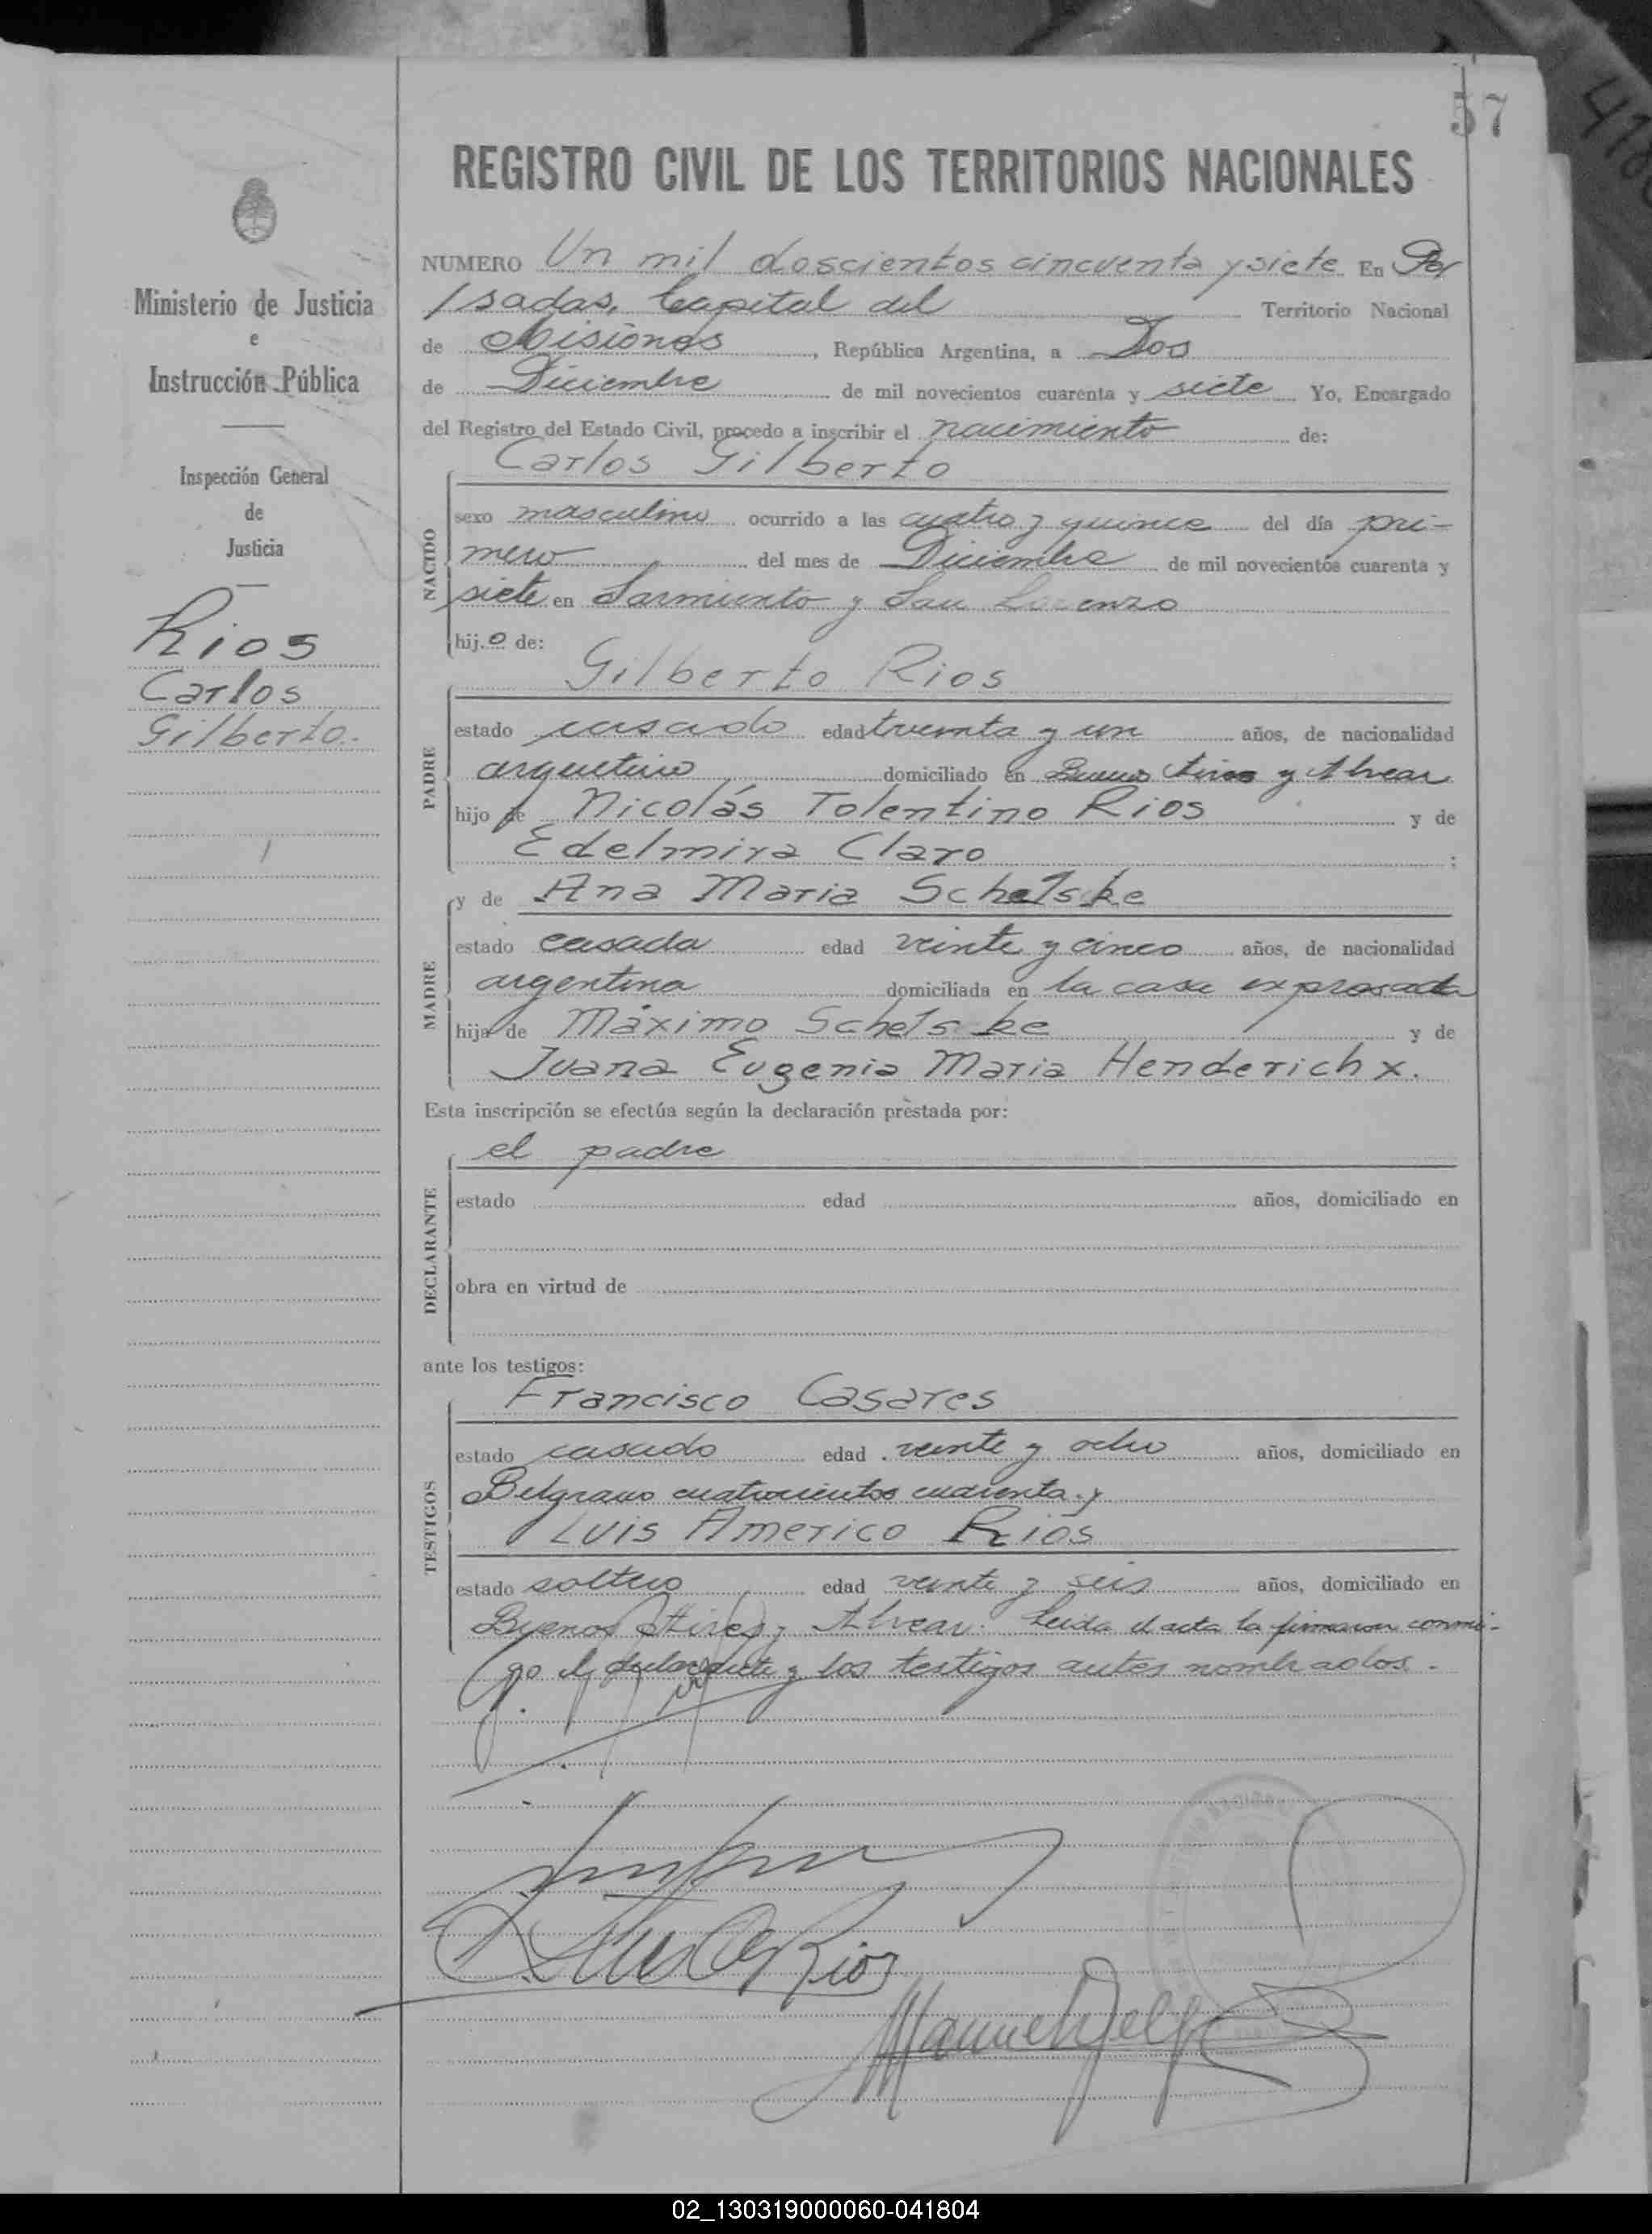 57
REGISTRO CIVIL DE LOS TERRITORIOS NACIONALES
NUMERO Un mil doscientos cincuenta y siete En Po/
/sadas, Capital del Territorio Nacional
de Misiones, República Argentina, a Dos
de Diciembre de mil novecientos cuarenta y siete Yo, Encargado
del Registro del Estado Civil, procedo a inscribir el nacimiento de:
Carlos Gilberto
NACIDO
sexo masculino ocurrido a las cuatro y quince del día pri-
mero del mes de Diciembre de mil novecientos cuarenta y
siete en Sarmiento y San Lorenzo
hijo de:
Gilberto Rios
PADRE
estado casado edad treinta y un años, de nacionalidad
argentino domiciliado en Buenos Aires y Alvear
hijo de Nicolás Tolentino Rios y de
Edelmira Claro ;
y de Ana Maria Schelske
MADRE
estado casada edad veinte y cinco años, de nacionalidad
argentina domiciliada en la casa expresada
hija de Máximo Schelske y de
Juana Eugenia Maria Henderichx.
Esta inscripción se efectúa según la declaración prestada por:
el padre
DECLARANTE
estado edad años, domiciliado en
obra en virtud de
ante los testigos:
Francisco Casares
TESTIGOS
estado casado edad veinte y ocho años, domiciliado en
Belgrano cuatrocientos cuarenta y
Luis Americo Rios
estado soltero edad veinte y seis años, domiciliado en
Buenos Aires y Alvear. Leida el acta la firmaron conmi-
go el declarante y los testigos antes nombrados.
Rios
Manuel
Ministerio de Justicia
e
Instrucción Pública
Inspección General
de
Justicia
Rios
Carlos
Gilberto.
02_130319000060-041804